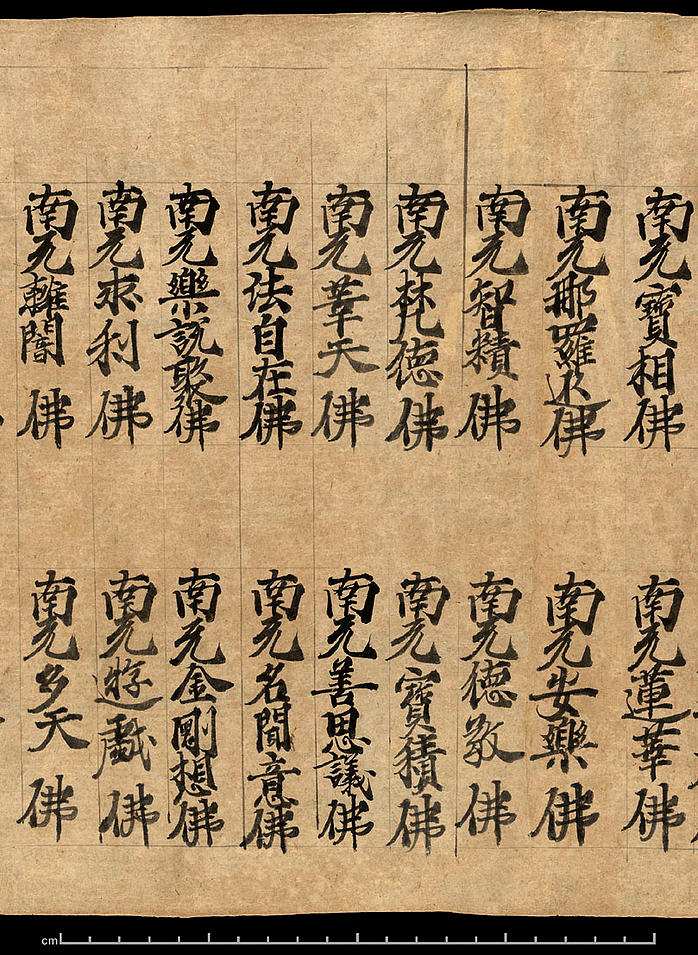 南无寶相佛 南无蓮華佛
南无那羅延佛 南无安樂佛
南无智積佛 南无德敬佛
南无梵德佛 南无寶積佛
南无華天佛 南无善思議佛
南无法自在佛 南无名聞意佛
南无樂說聚佛 南无金剛想佛
南无求利佛 南无遊戲佛
南无離闇佛 南无多天佛
cm